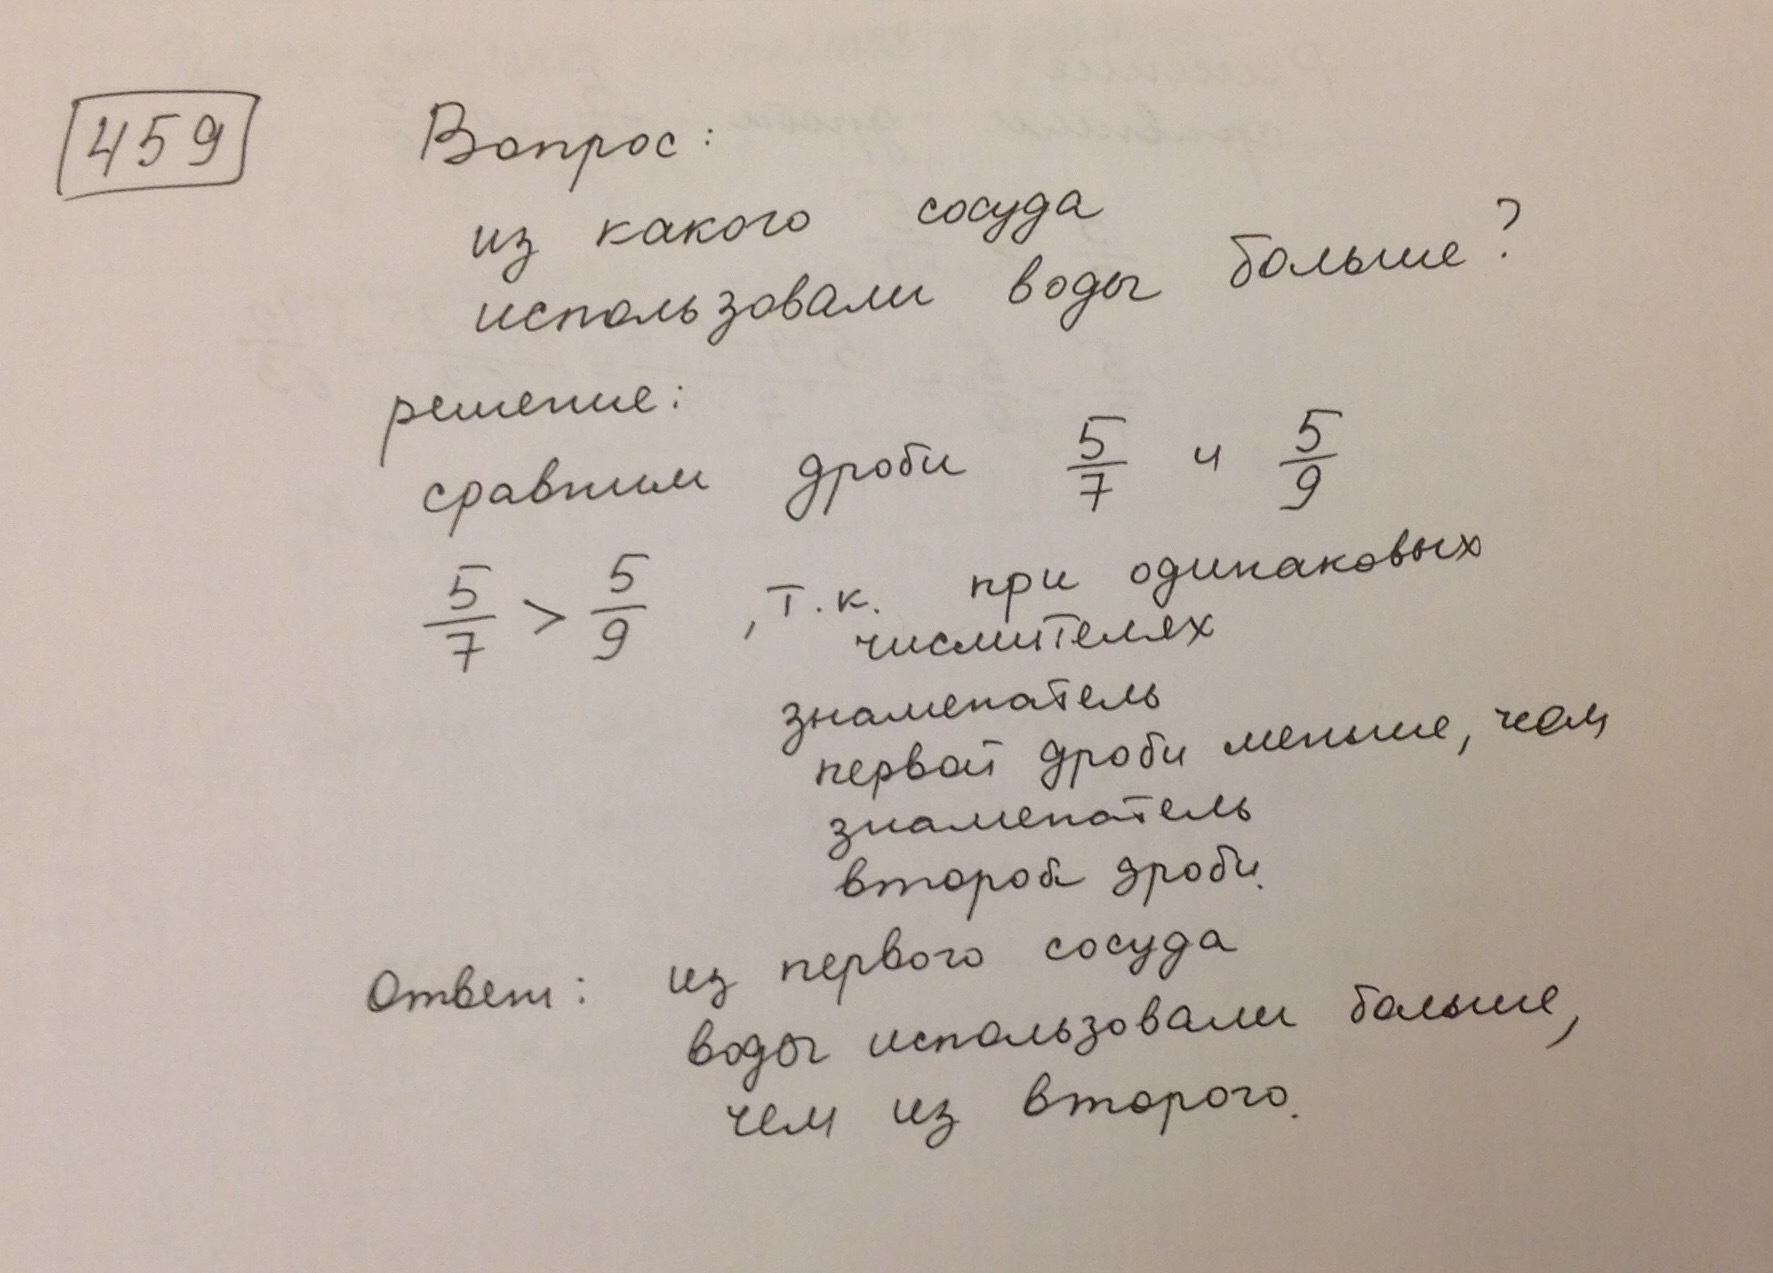 459
Вопрос:
из какого сосуда
использовали воды больше?
решение:
сравним дроби 5/7 и 5/9
5/7 > 5/9 , т.к. при одинаковых
числителях
знаменатель
первой дроби меньше, чем
знаменатель
второй дроби.
Ответ: из первого сосуда
воды использовали больше,
чем из второго.